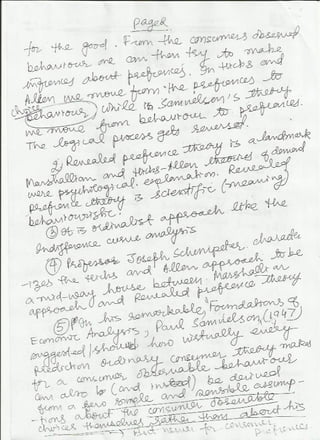 Page 2
for the good. From the consumers observed
behaviour one can then try to make
infrences about prefrences. In Hicks and
Allen we move from the prefrences to
choice
behaviour, while is Samuelson's theory
we move from behaviour to prefrences.
The logical process gets reversed.
2) Revealed prefrence theory is a landmark
Marshallian and Hicks-Allen theories of demand
were psychological explanation. Revealed
prefrence theory is scientific (meaning)
behaviouristic.
③ It is ordinalist approach like the
Indifference curve analysis
④ Professor Joseph Schumpeter characte
-rizes the Hicks and Allen approach to be
a mid-way house between Marshallian
approach and Revealed prefrence theory
⑤ In his remarkable, Foundations of
Economic Analysis, Paul Samuelson (1947)
suggested / should how virtually every
prediction ordinary consumer theory makes
for a consumer observable behaviour
can also b (and instead) be derived
from a few simple and sensible assump-
tions about the consumer observable
choices themselves, rather than about his
for consumer